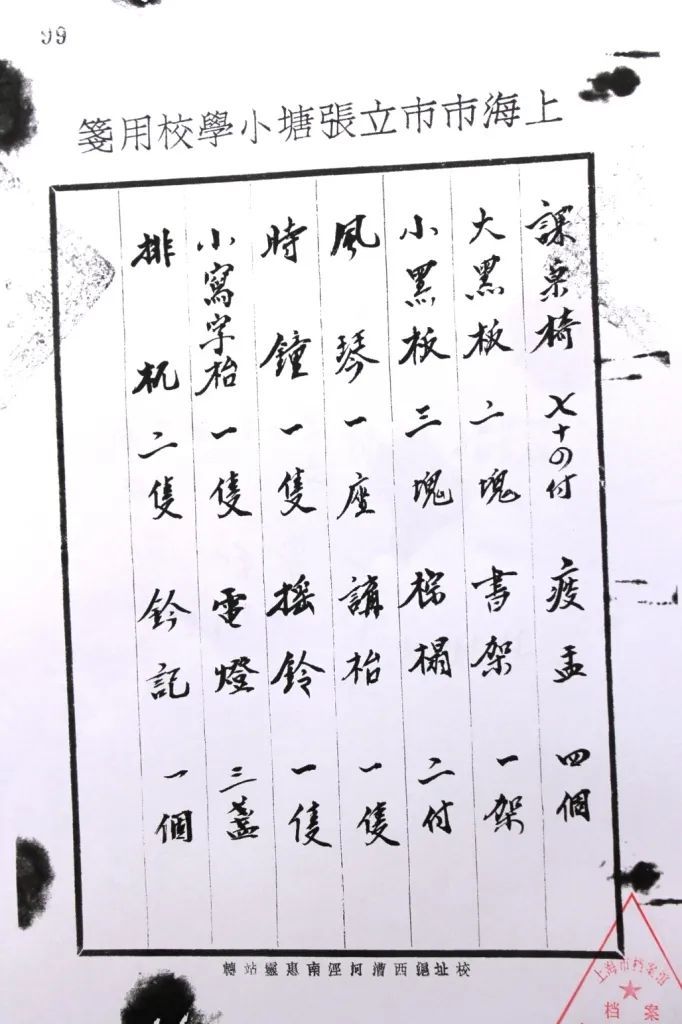 99
上海市市立張塘小學校用箋
課桌椅 七十四付 痰盂 四個
大黑板 二塊 書架 一架
小黑板 三塊 棕榻 二付
風琴 一座 講枱 一隻
時鐘 一隻 搖鈴 一隻
小寫字枱 一隻 電燈 三盞
排杌 二隻 鈐記 一個
校址滬西漕河涇南惠靈站轉
上海市档案馆
档案